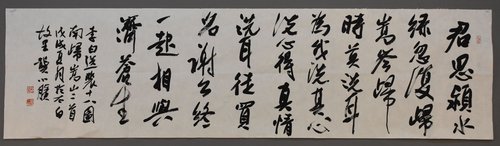 君思潁水
綠忽復歸
嵩岑歸
時莫洗耳
為我洗其心
洗心得真情
洗耳徒買
名謝公終
一起相與
濟蒼生
李白送裴十八圖
南歸嵩山二首
戊戌夏月於太白
故里